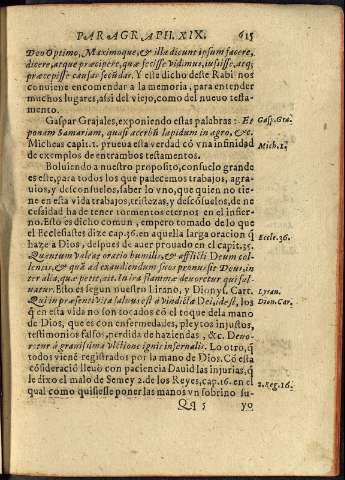 PARAGRAPH. XIX. 615
Deo Optimo, Maximoque, & illa dicunt ipsum facere,
dicere, atque præcipere, quæ fecisse vidimus, iussisse, atq;
præcepisse causas secũdas. Y este dicho deste Rabi nos
conuiene encomendar a la memoria, para entender
muchos lugares, assi del viejo, como del nueuo testa-
mento.
Gaspar Grajales, exponiendo estas palabras: Et Gasp. Gra.
ponam Samariam, quasi aceruũ lapidum in agro, &c.
Micheas capit. 1. prueua esta verdad cõ vna infinidad Mich. 1.
de exemplos de entrambos testamentos.
Boluiendo a nuestro proposito, consuelo grande
es este, para todos los que padecemos trabajos, agra-
uios, y desconsuelos, saber lo vno, que quien no tie-
ne en esta vida trabajos, tristezas, y descõsuelos, de ne
cessidad ha de tener tormentos eternos en el infier-
no. Esto es dicho comun, empero tomado de lo que
el Ecclesiastes dize cap. 36. en aquella larga oracion q̃ Eccle. 36.
haze a Dios, despues de auer prouado en el capit. 35.
Quantum valeat oratio humilis, & afflicti Deum col-
lentis, & quã ad exaudiendum
alia, quæ petit, ait. In ira flammæ deuoretur qui sal-
uatur. Esto es segun nuestro Lirano, y Dionys. Cart. Lyran.
Qui in præsenti vita saluus est à vindicta Dei, id est, los Dion. Car.
q̃ en esta vida no son tocados cõ el toque de la mano
de Dios, que es con enfermedades, pleytos injustos,
testimonios falsos, perdida de haziendas, &c. Deuo-
retur à grauissima vltione ignis infernalis. Lo otro, q̃
todos vienẽ registrados por la mano de Dios. Cõ esta
cõsideraciõ lleuò con paciencia Dauid las injurias, q̃
le dixo el malo de Semey 2. de los Reyes, cap. 16. en el 2. Reg. 16.
qual como quisiesse poner las manos vn sobrino su-
Qq 5 yo